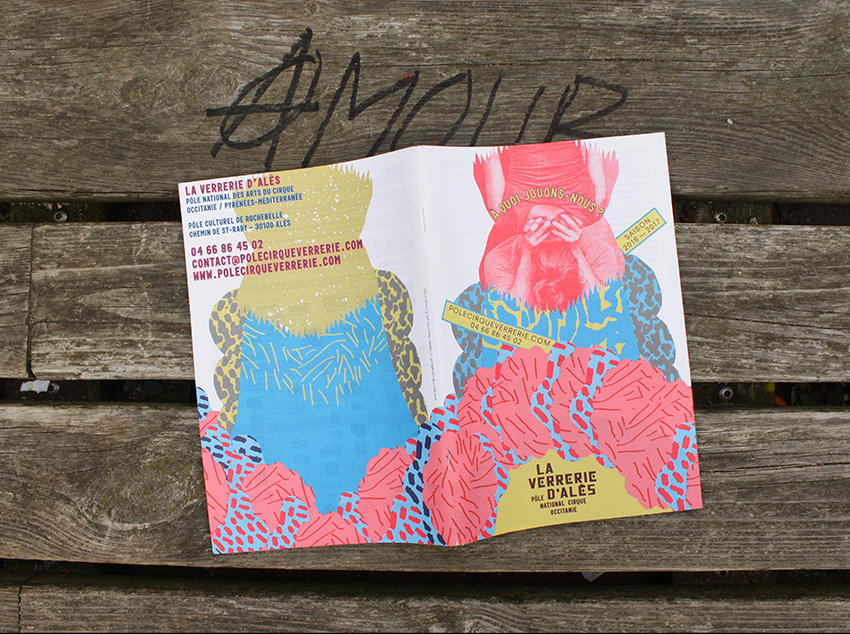 AMOUR
LA VERRERIE D'ALÈS
PÔLE NATIONAL DES ARTS DU CIRQUE
OCCITANIE / PYRÉNÉES-MÉDITERRANÉE
PÔLE CULTUREL DE ROCHEBELLE
CHEMIN DE ST-RABY – 30100 ALÈS
04 66 86 45 02
CONTACT@POLECIRQUEVERRERIE.COM
WWW.POLECIRQUEVERRERIE.COM
À QUOI JOUONS-NOUS ?
SAISON
2016 — 2017
POLECIRQUEVERRERIE.COM
04 66 86 45 02
LA
VERRERIE
D'ALÈS
PÔLE
NATIONAL CIRQUE
OCCITANIE